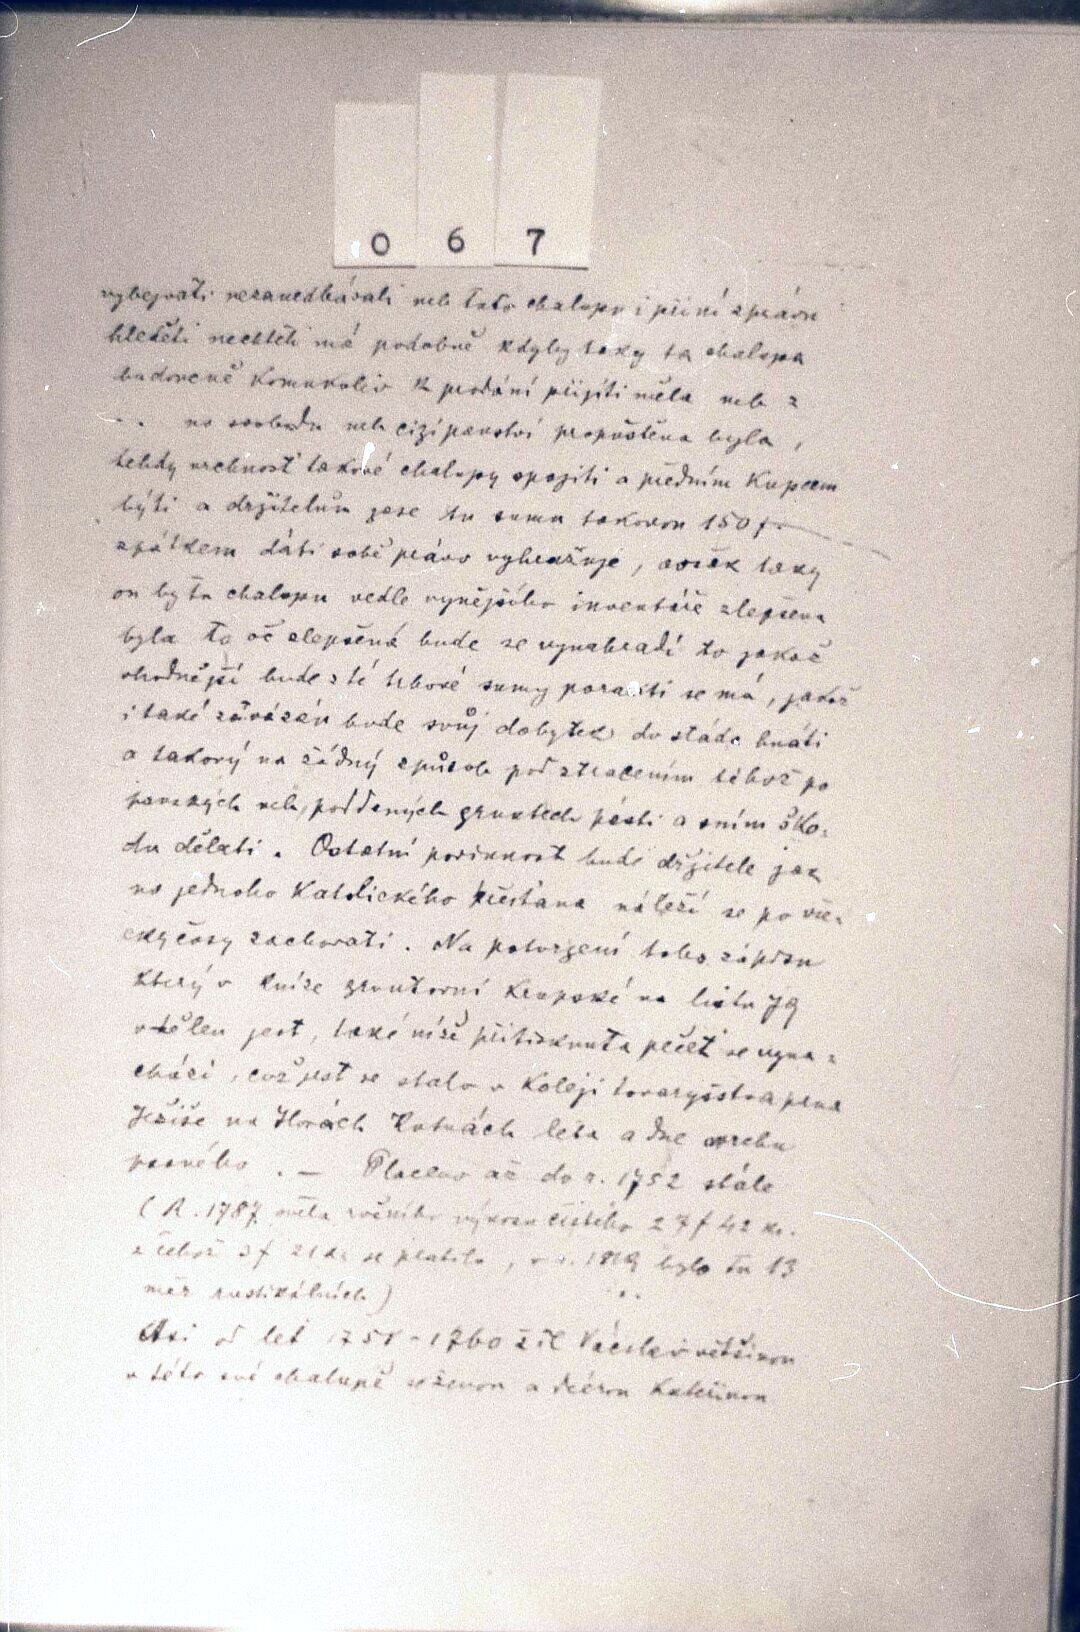 0 6 7
vybejvati nezanedbávali neb tuto chalupu i pilně zprávu
hleděti nechtěli má podobně kdyby taky ta chalupa
budoucně komukoliv k prodání přijíti měla neb z
.. na svobodu neb cizí panství propuštěna byla,
tehdy vrchnost takové chalupy spojiti a předním kupcem
býti a držitelům zase tu sumu takovou 150 f.
zpátkem dáti sobě právo vyhražuje, avšak taky
on by ta chalupu vedle vynějšího inventáře zlepšena
byla to oč zlepšená bude se vynahradí to jakož
shodnější bude z té trhové sumy poraziti se má, jakož
i také zavázán bude svůj dobytek do stáda hnáti
a takový na žádný způsob pod ztracením téhož po
panských neb poddaných gruntech pásti a sním ško-
du dělati. Ostatní povinnost bude držitele jak
na jednoho Katolického křesťana náleží se po vše-
cky časy zachovati. Na potvrzení toho zápisu
který v knize gruntovní Krupské na listu 79
vtělen jest, také níže přitisknuta pečeť se vyna-
chází, což jest se stalo v Koleji tovaryšstva pana
Ježíše na Horách Kutnách leta a dne svrchu
psaného. — Placeno až do r. 1752 stále
(R. 1787 měla ročního výnosu čistého 27 f 42 kr.
z čehož 3 f 21 kr se platilo, v r. 1819 bylo tu 13
měr rustikálních)
Asi od let 1758 - 1760 žil Václav většinou
v této své chalupě se ženou a dcérou Kateřinou